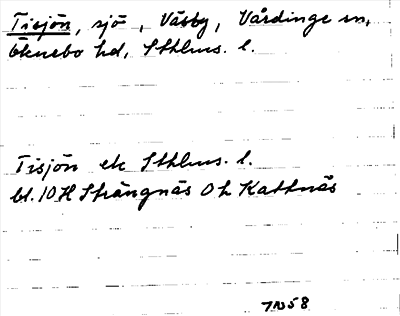 Tisjön, sjö, Väsby, Vårdinge sn,
Öknebo hd, Sthlms. l.
Tisjön ek Sthlms. l.
bl. 10H Strängnäs O L Kattnäs
7N58